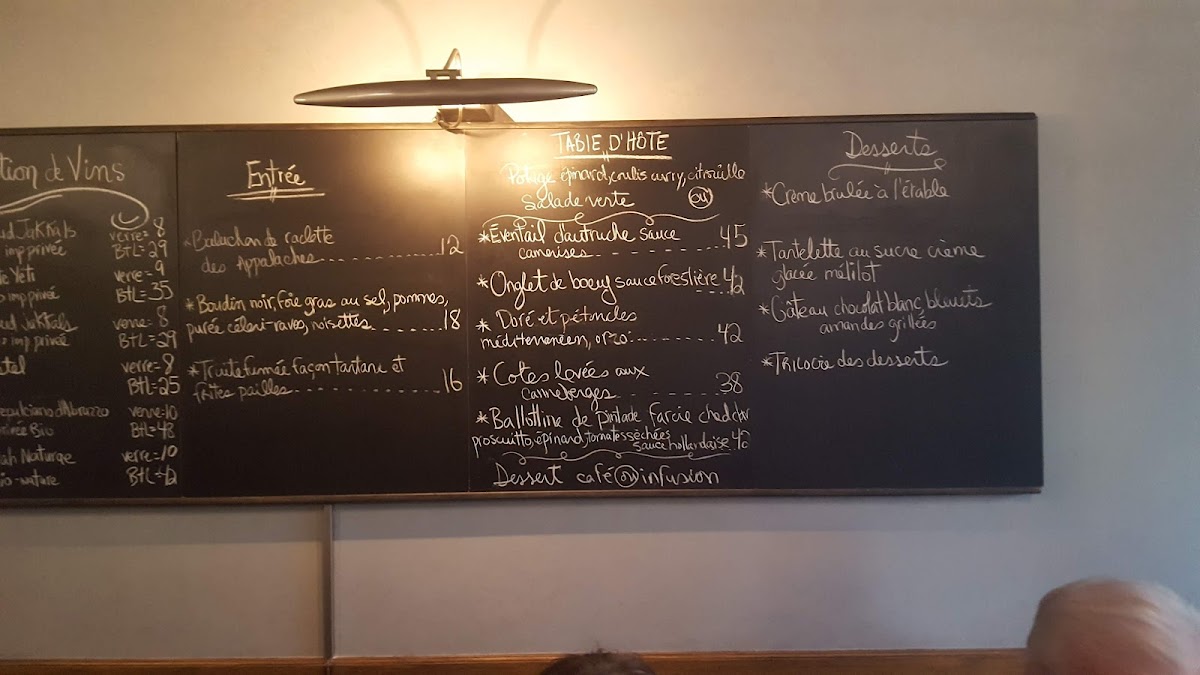 tion de Vins
ud JaKKals verre= 8
imp privée BTL= 29
ie Yeti verre= 9
imp privé BtL= 35
ud JaKKals verre= 8
imp privée BTL= 29
verre= 8
BtL= 25
epulciano d'Abruzzo verre=10
privée Bio BtL= 48
ah Naturae verre=10
io-nature BtL= 42
Entrée
*Baluchon de raclette
des Appalaches 12
*Boudin noir, foie gras au sel, pommes,
purée céleri-raves, noisettes 18
*Truite fumée façon tartare et
frites pailles 16
TABLE D'HÔTE
Potage épinard, coulis curry, citrouille
Salade verte ou
*Éventail d'autruche sauce
camerises 45
*Onglet de boeuf sauce forestière 42
* Doré et pétoncles
méditerranéen, orzo 42
*Cotes levées aux
canneberges 38
*Ballottine de pintade farcie cheddar
proscuitto, épinard, tomates séchées
sauce hollandaise 42
Dessert café ou infusion
Desserts
*Crème brulée à l'érable
*Tartelette au sucre crème
glacée mélilot
*Gâteau chocolat blanc bleuets
amandes grillées
*Trilogie des desserts